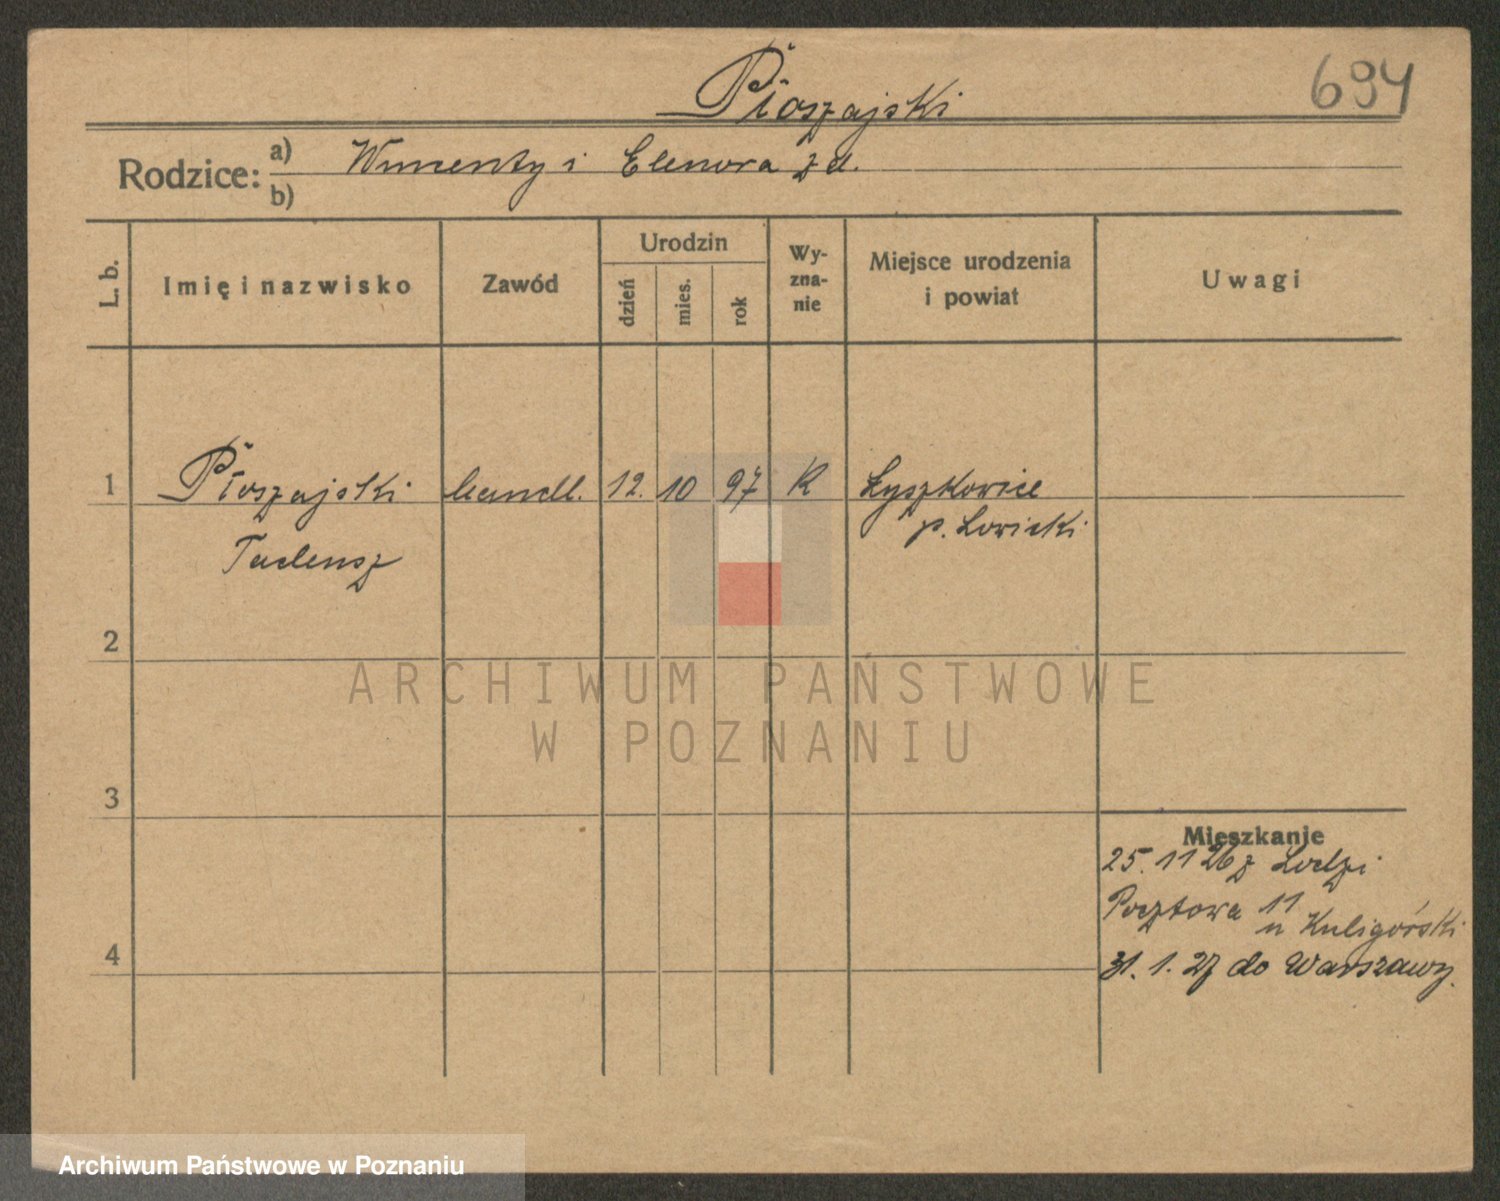 694
Płoszajski
Rodzice: a) Wincenty i Elenora z d.
b)
L. b. Imię i nazwisko Zawód Urodzin dzień mies. rok Wy-zna-nie Miejsce urodzenia i powiat Uwagi
1 Płoszajski handl. 12. 10 97 R Łyszkowice
Tadeusz p. Łowicki
2
3
4
Mieszkanie
25. 11 26 z Łodzi
Pocztowa 11
u Kuligórski
31. 1. 27 do Warszawy.
ARCHIWUM PAŃSTWOWE
W POZNANIU
Archiwum Państwowe w Poznaniu